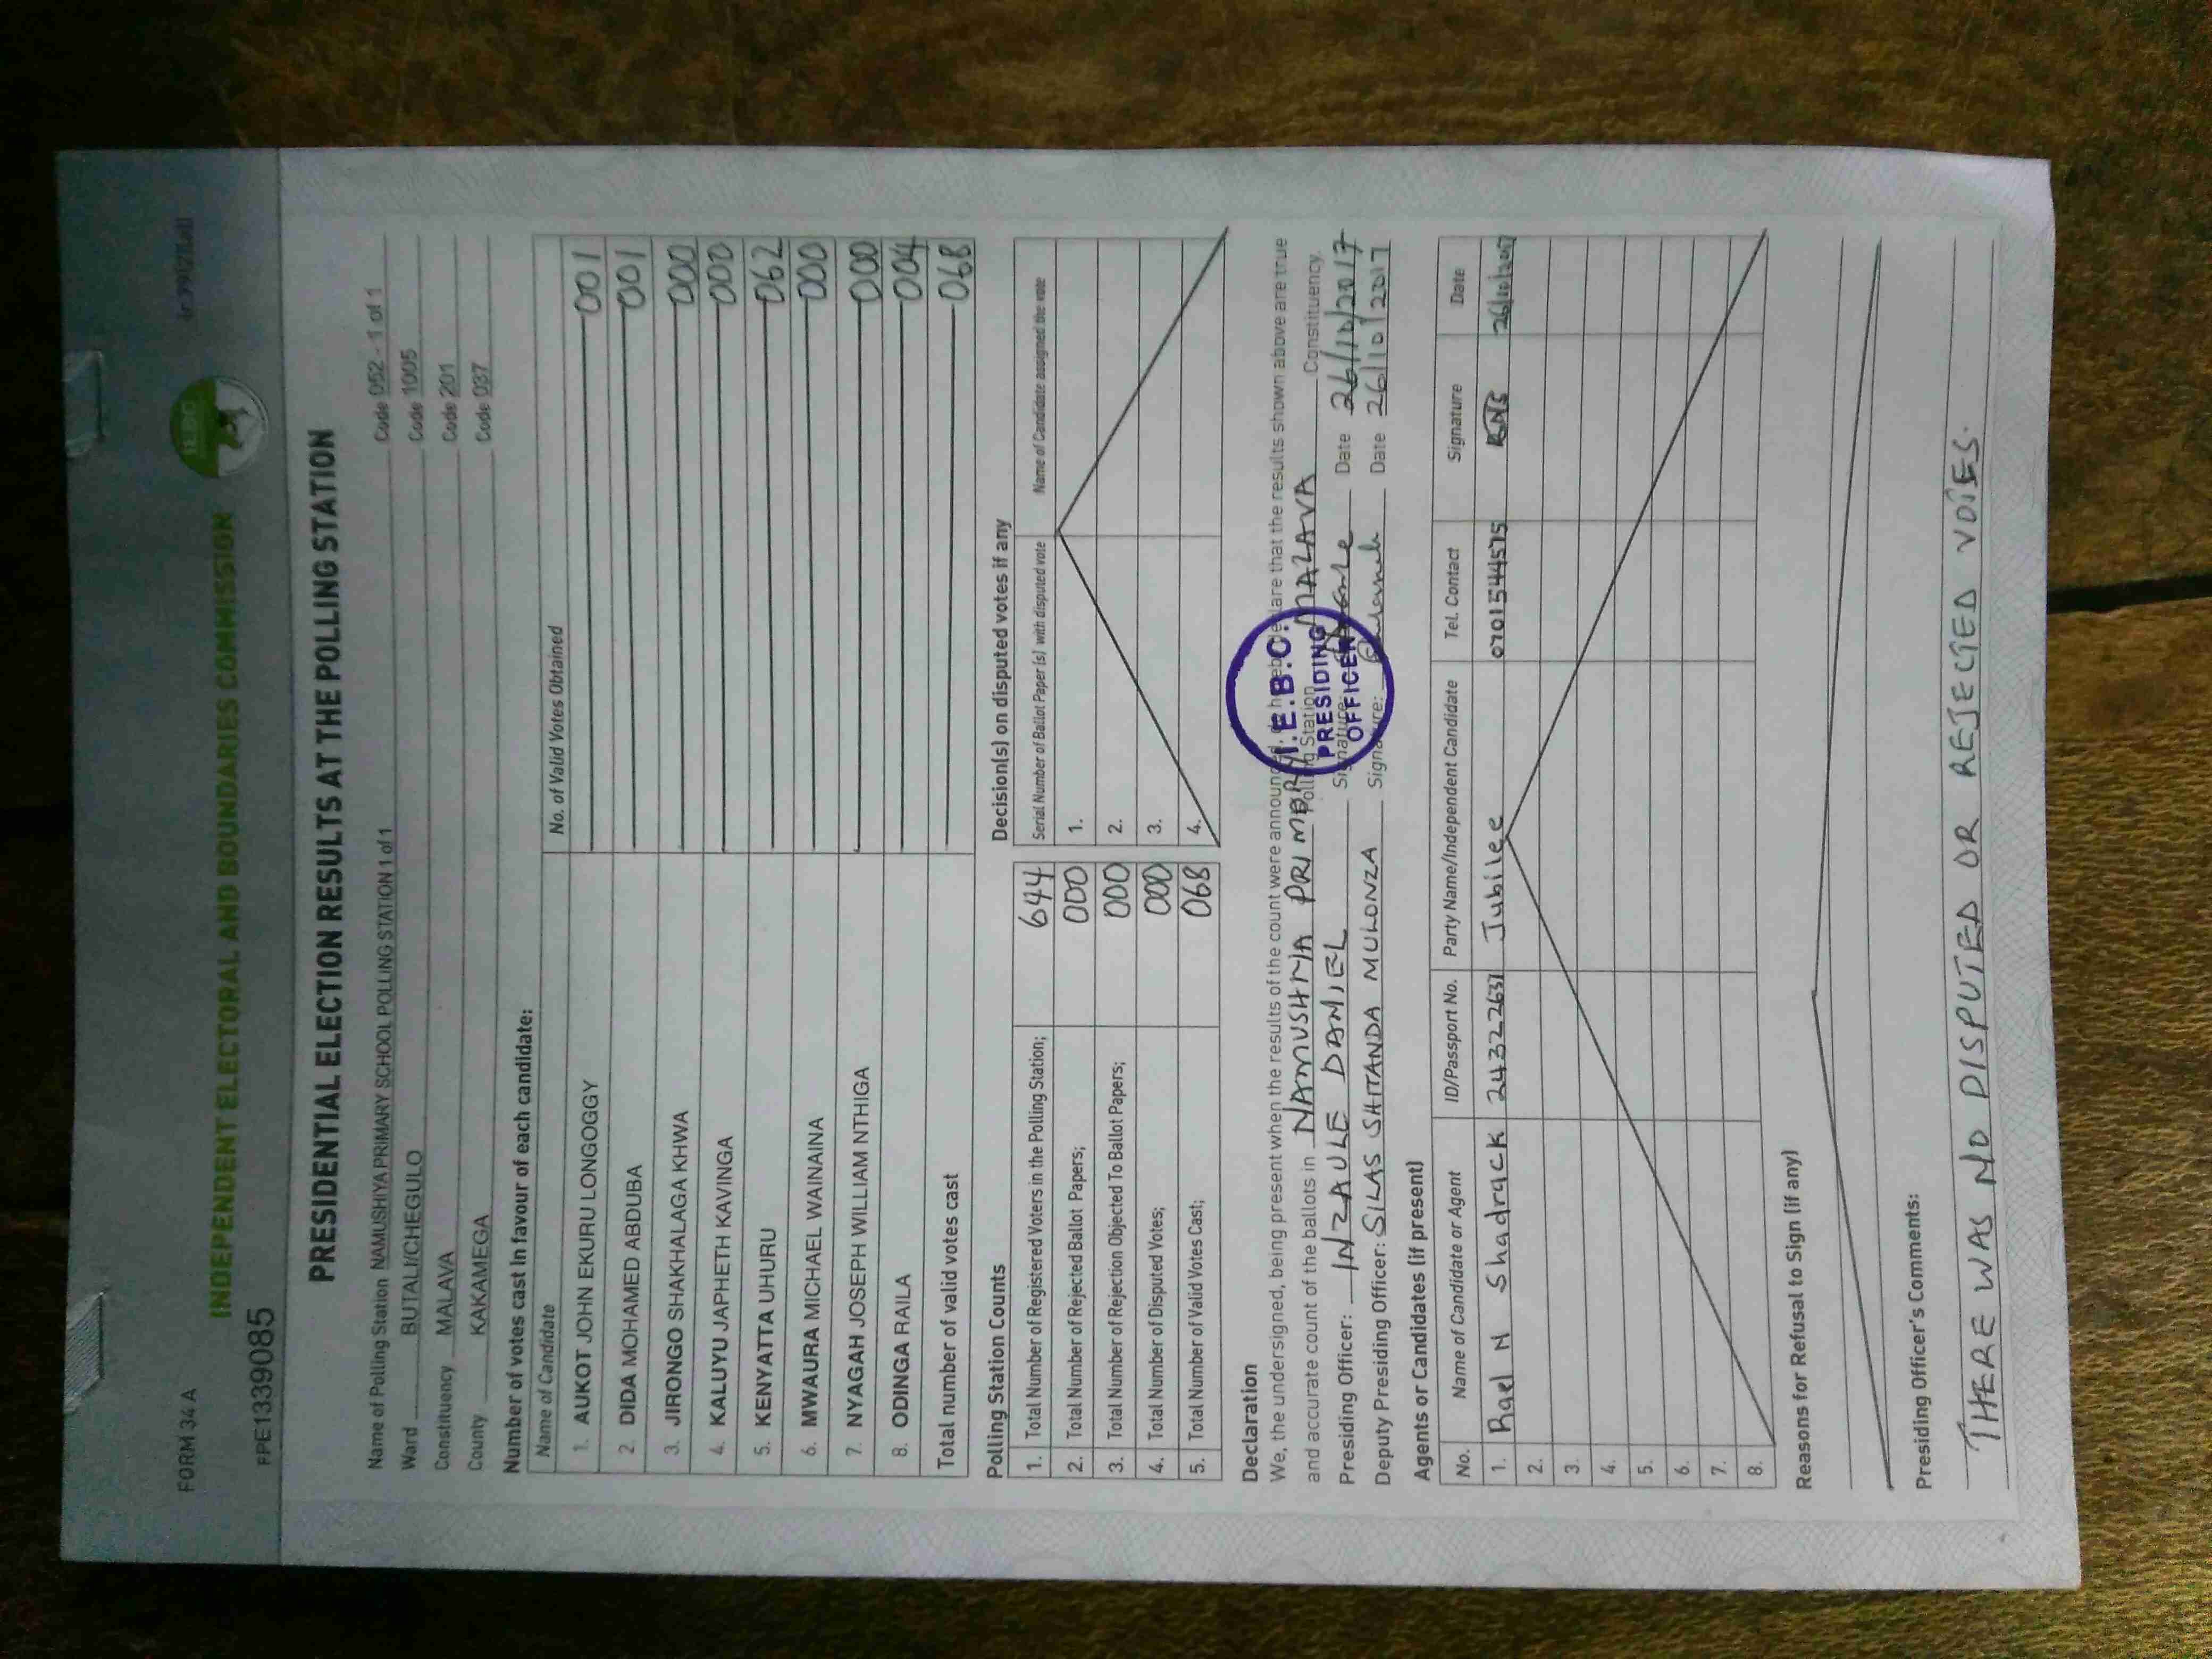 FORM 34 A
INDEPENDENT ELECTORAL AND BOUNDARIES COMMISSION
FPE1339085
PRESIDENTIAL ELECTION RESULTS AT THE POLLING STATION
Name of Polling Station NAMUSHIYA PRIMARY SCHOOL POLLING STATION 1 of 1 Code 052 - 1 of 1
Ward BUTALI/CHEGULO Code 1005
Constituency MALAVA Code 201
County KAKAMEGA Code 037
Number of votes cast in favour of each candidate:
Name of Candidate No. of Valid Votes Obtained
1. AUKOT JOHN EKURU LONGOGGY 001
2 DIDA MOHAMED ABDUBA 001
3. JIRONGO SHAKHALAGA KHWA 000
4. KALUYU JAPHETH KAVINGA 000
5. KENYATTA UHURU 062
6. MWAURA MICHAEL WAINAINA 000
7. NYAGAH JOSEPH WILLIAM NTHIGA 000
8. ODINGA RAILA 004
Total number of valid votes cast 068
Polling Station Counts
1. Total Number of Registered Voters in the Polling Station; 644
2. Total Number of Rejected Ballot Papers; 000
3. Total Number of Rejection Objected To Ballot Papers; 000
4. Total Number of Disputed Votes; 000
5. Total Number of Valid Votes Cast; 068
Decision(s) on disputed votes if any
Serial Number of Ballot Paper (s) with disputed vote Name of Candidate assigned the vote
1.
2.
3.
4.
Declaration
We, the undersigned, being present when the results of the count were announced, do hereby declare that the results shown above are true
and accurate count of the ballots in NAMUSHIYA PRIMARY Polling Station MALAVA Constituency.
Presiding Officer: INZAULE DANIEL Signature: Date 26/10/2017
Deputy Presiding Officer: SILAS SHITANDA MULONZA Signature: Date 26/10/2017
I.E.B.C.
PRESIDING
OFFICER
Agents or Candidates (if present)
No. Name of Candidate or Agent ID/Passport No. Party Name/Independent Candidate Tel. Contact Signature Date
1. Rael N Shadrack 24322637 Jubilee 0701544575 26/10/2017
2.
3.
4.
5.
6.
7.
8.
Reasons for Refusal to Sign (if any)
Presiding Officer's Comments:
THERE WAS NO DISPUTED OR REJECTED VOTES.